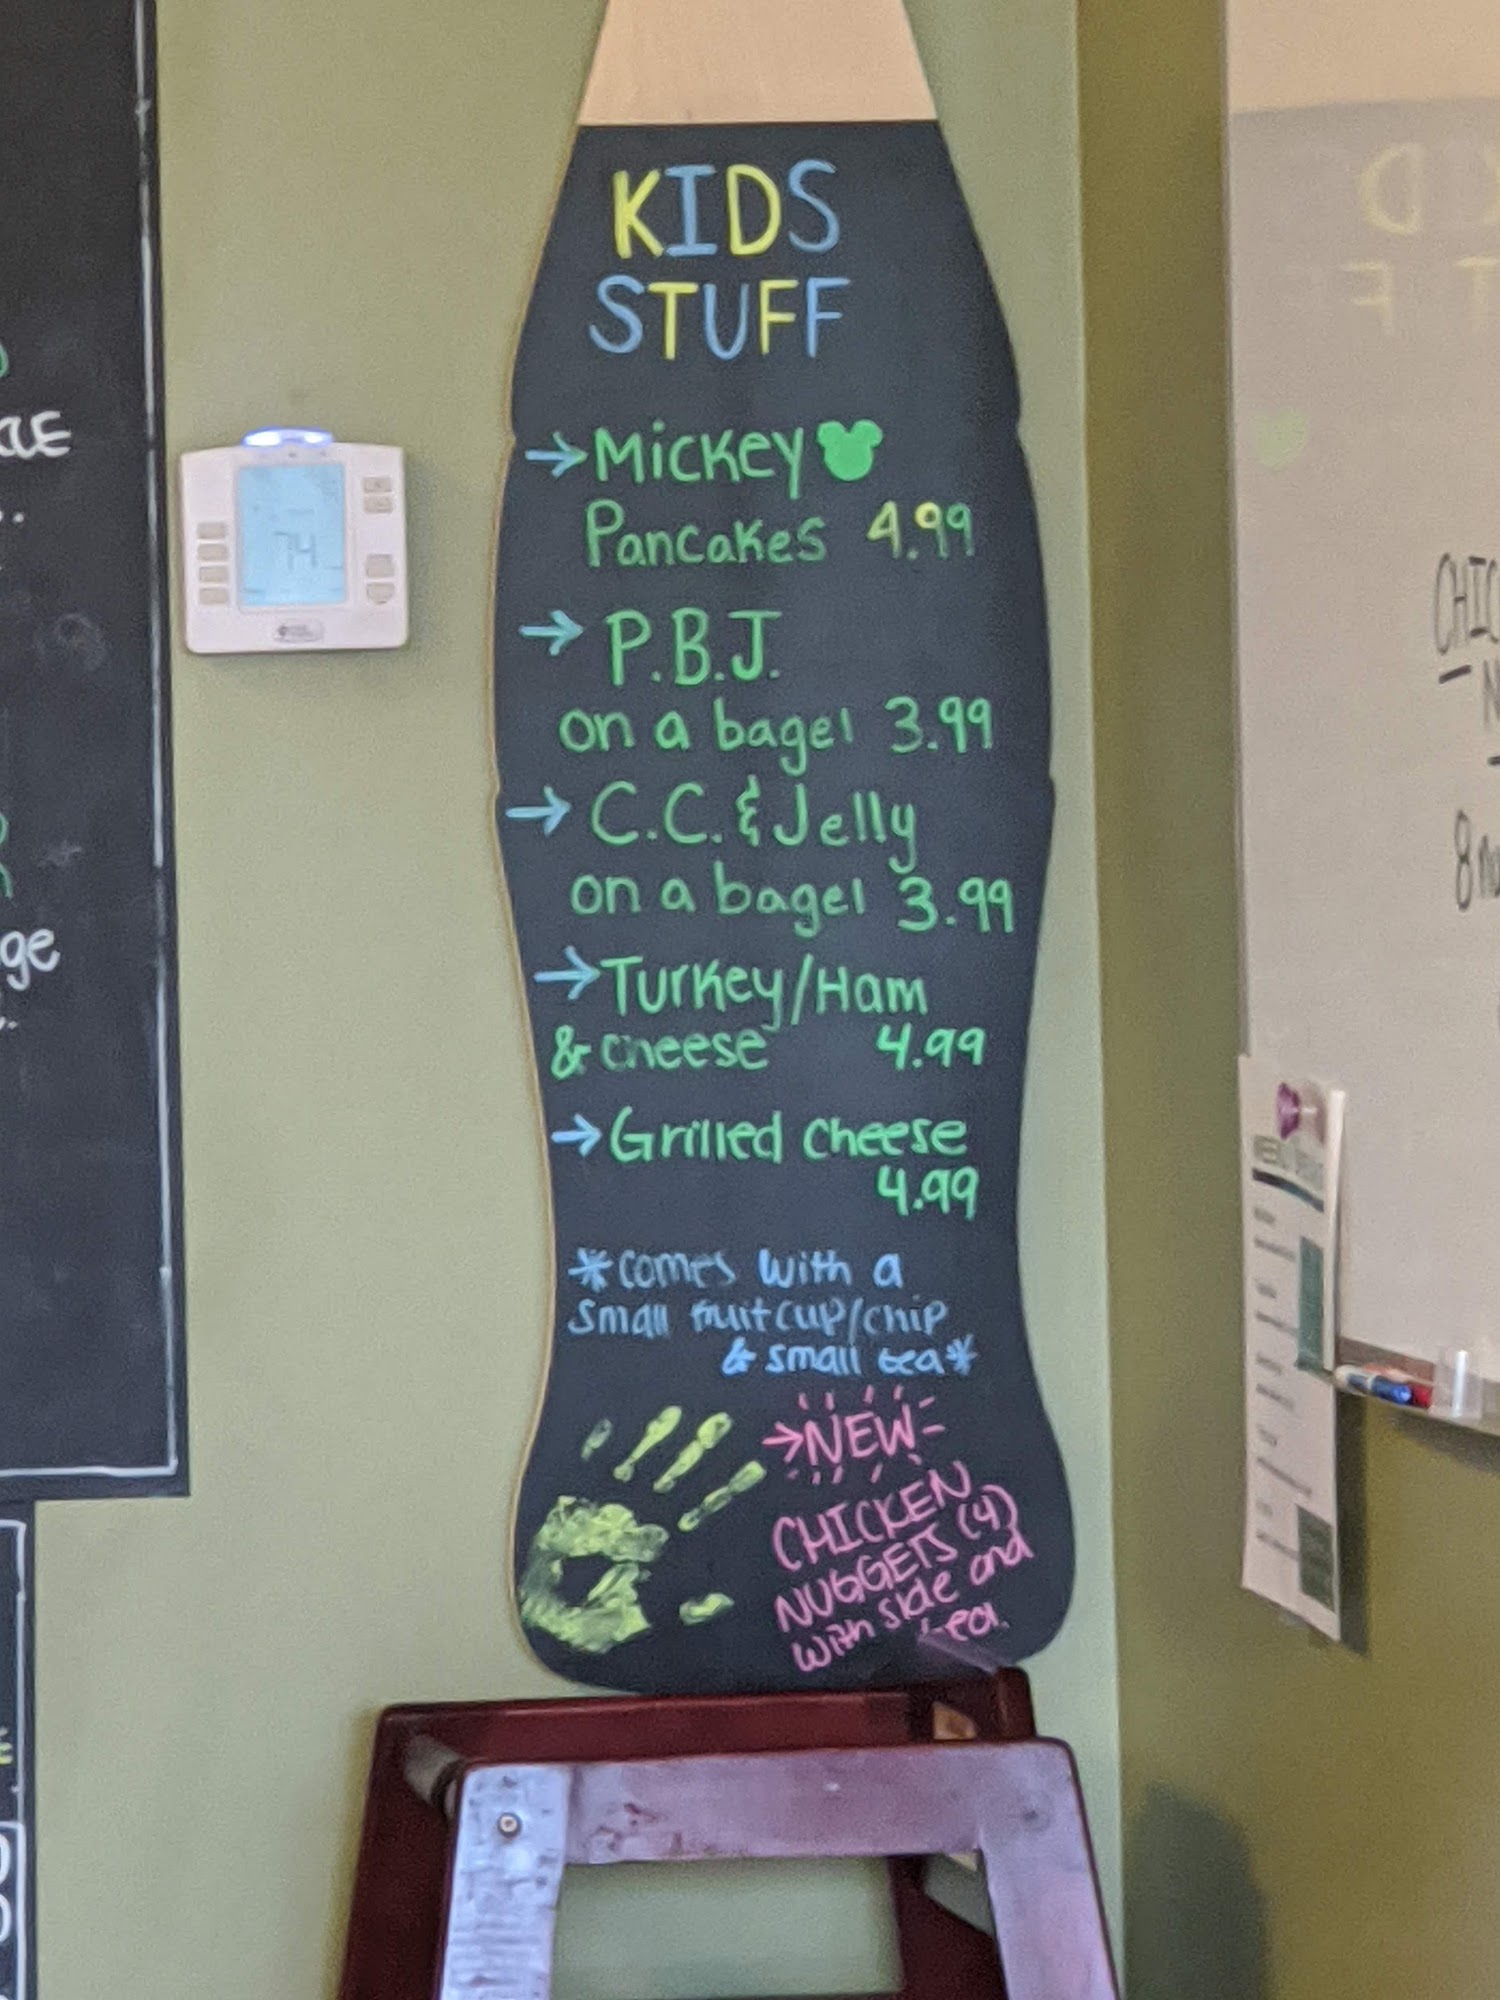 KIDS
STUFF
→ Mickey
Pancakes 4.99
→ P.B.J.
on a bagel 3.99
→ C.C. & Jelly
on a bagel 3.99
→ Turkey/Ham
& cheese 4.99
→ Grilled cheese
4.99
*comes with a
small fruit cup/chip
& small tea*
→ NEW
CHICKEN
NUGGETS (4)
with side and
tea.
74
ge
CHIC
N
8